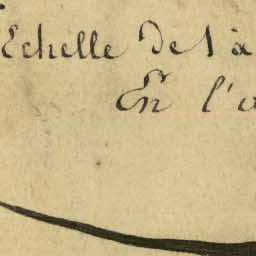 Echelle de 1 à
En l'